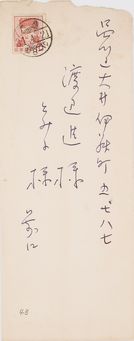 品川区大井伊藤町五七八七
渡辺進様
とみ子様
48